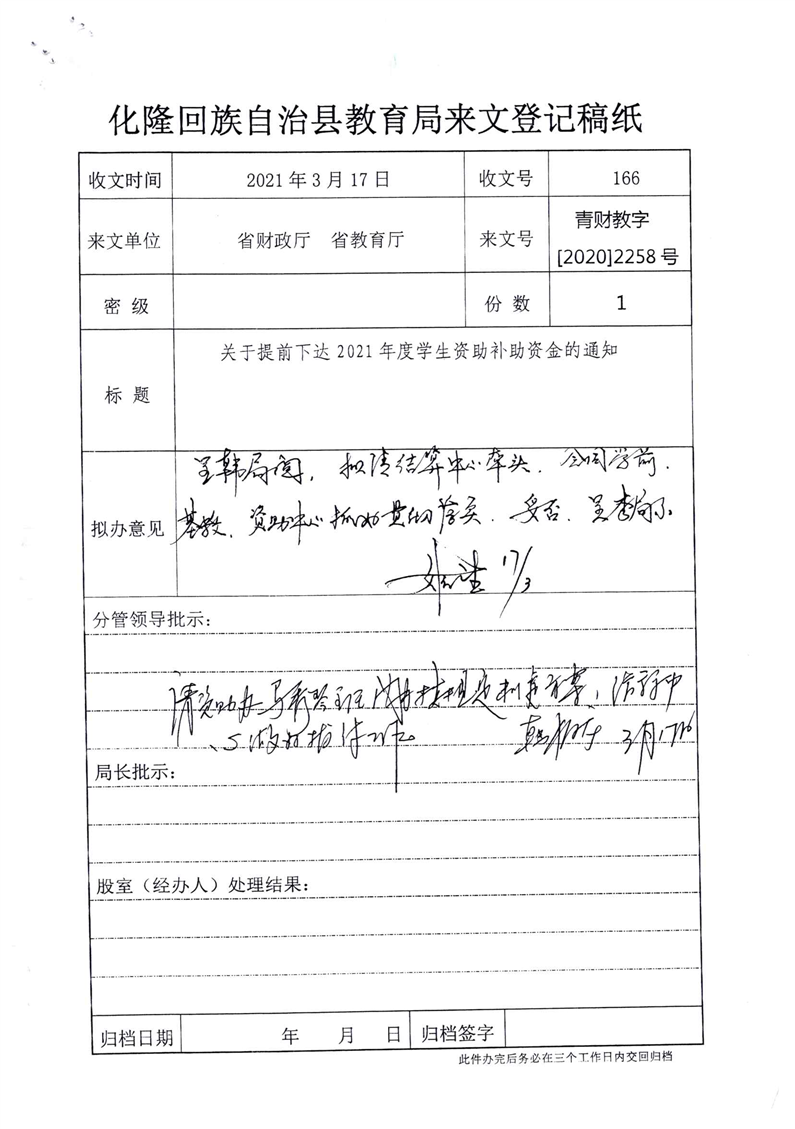 化隆回族自治县教育局来文登记稿纸
收文时间 2021年3月17日 收文号 166
来文单位 省财政厅 省教育厅 来文号 青财教字[2020]2258号
密 级 份 数 1
标 题 关于提前下达2021年度学生资助补助资金的通知
拟办意见 呈韩局阅，拟请结算中心牵头、会同学前、
基教、资助中心抓办贯彻落实。妥否，呈李局示
17/3
分管领导批示：
请资助办马
做好拨付工作 3月17日
局长批示：
股室（经办人）处理结果：
归档日期 年 月 日 归档签字
此件办完后务必在三个工作日内交回归档